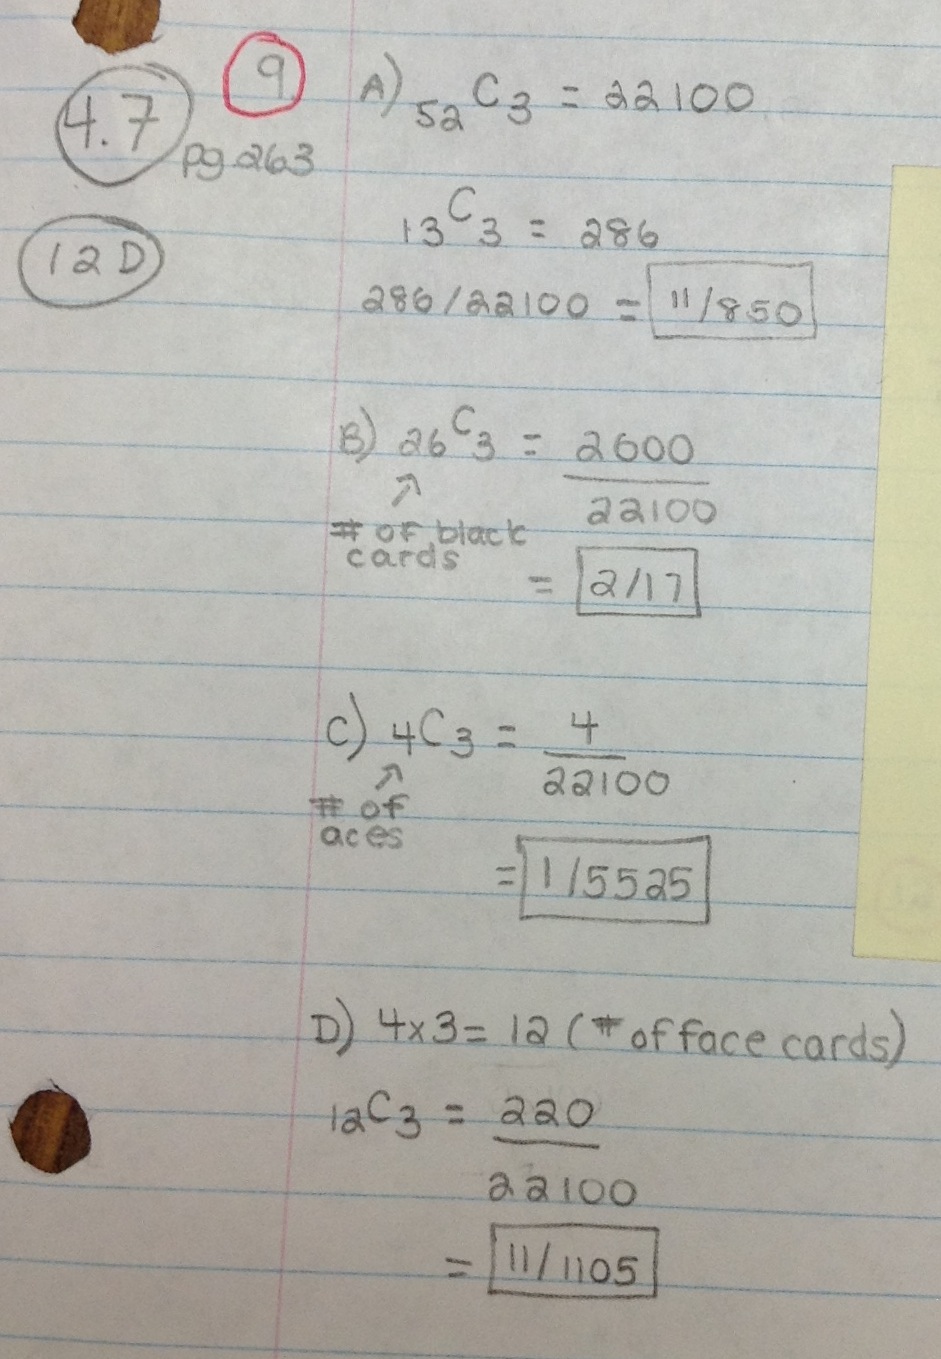 4.7
9
pg 263
12D
A) 52C3 = 22100
13C3 = 286
286/22100 = 11/850
B) 26C3 = 2600
22100
↗
# of black
cards
= 2/17
C) 4C3 = 4
22100
↗
# of
aces
= 1/5525
D) 4×3 = 12 (# of face cards)
12C3 = 220
22100
= 11/1105